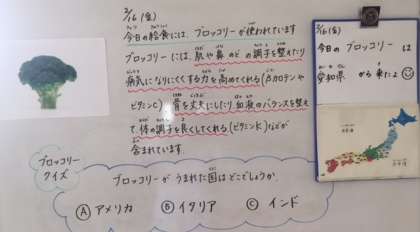 2/16(金)
今日の給食には、ブロッコリーが使われています
ブロッコリーには、肌や鼻のどの調子を整えたり
病気になりにくくする力を高めてくれる(βカロテンや
ビタミンC)、骨を丈夫にしたり血液のバランスを整え
て、体の調子を良くしてくれる(ビタミンK)などが
含まれています。
ブロッコリー
クイズ
ブロッコリーがうまれた国はどこでしょうか。
Ⓐ アメリカ Ⓑ イタリア Ⓒ インド
2/16(金)
今日のブロッコリーは
愛知県から来たよ